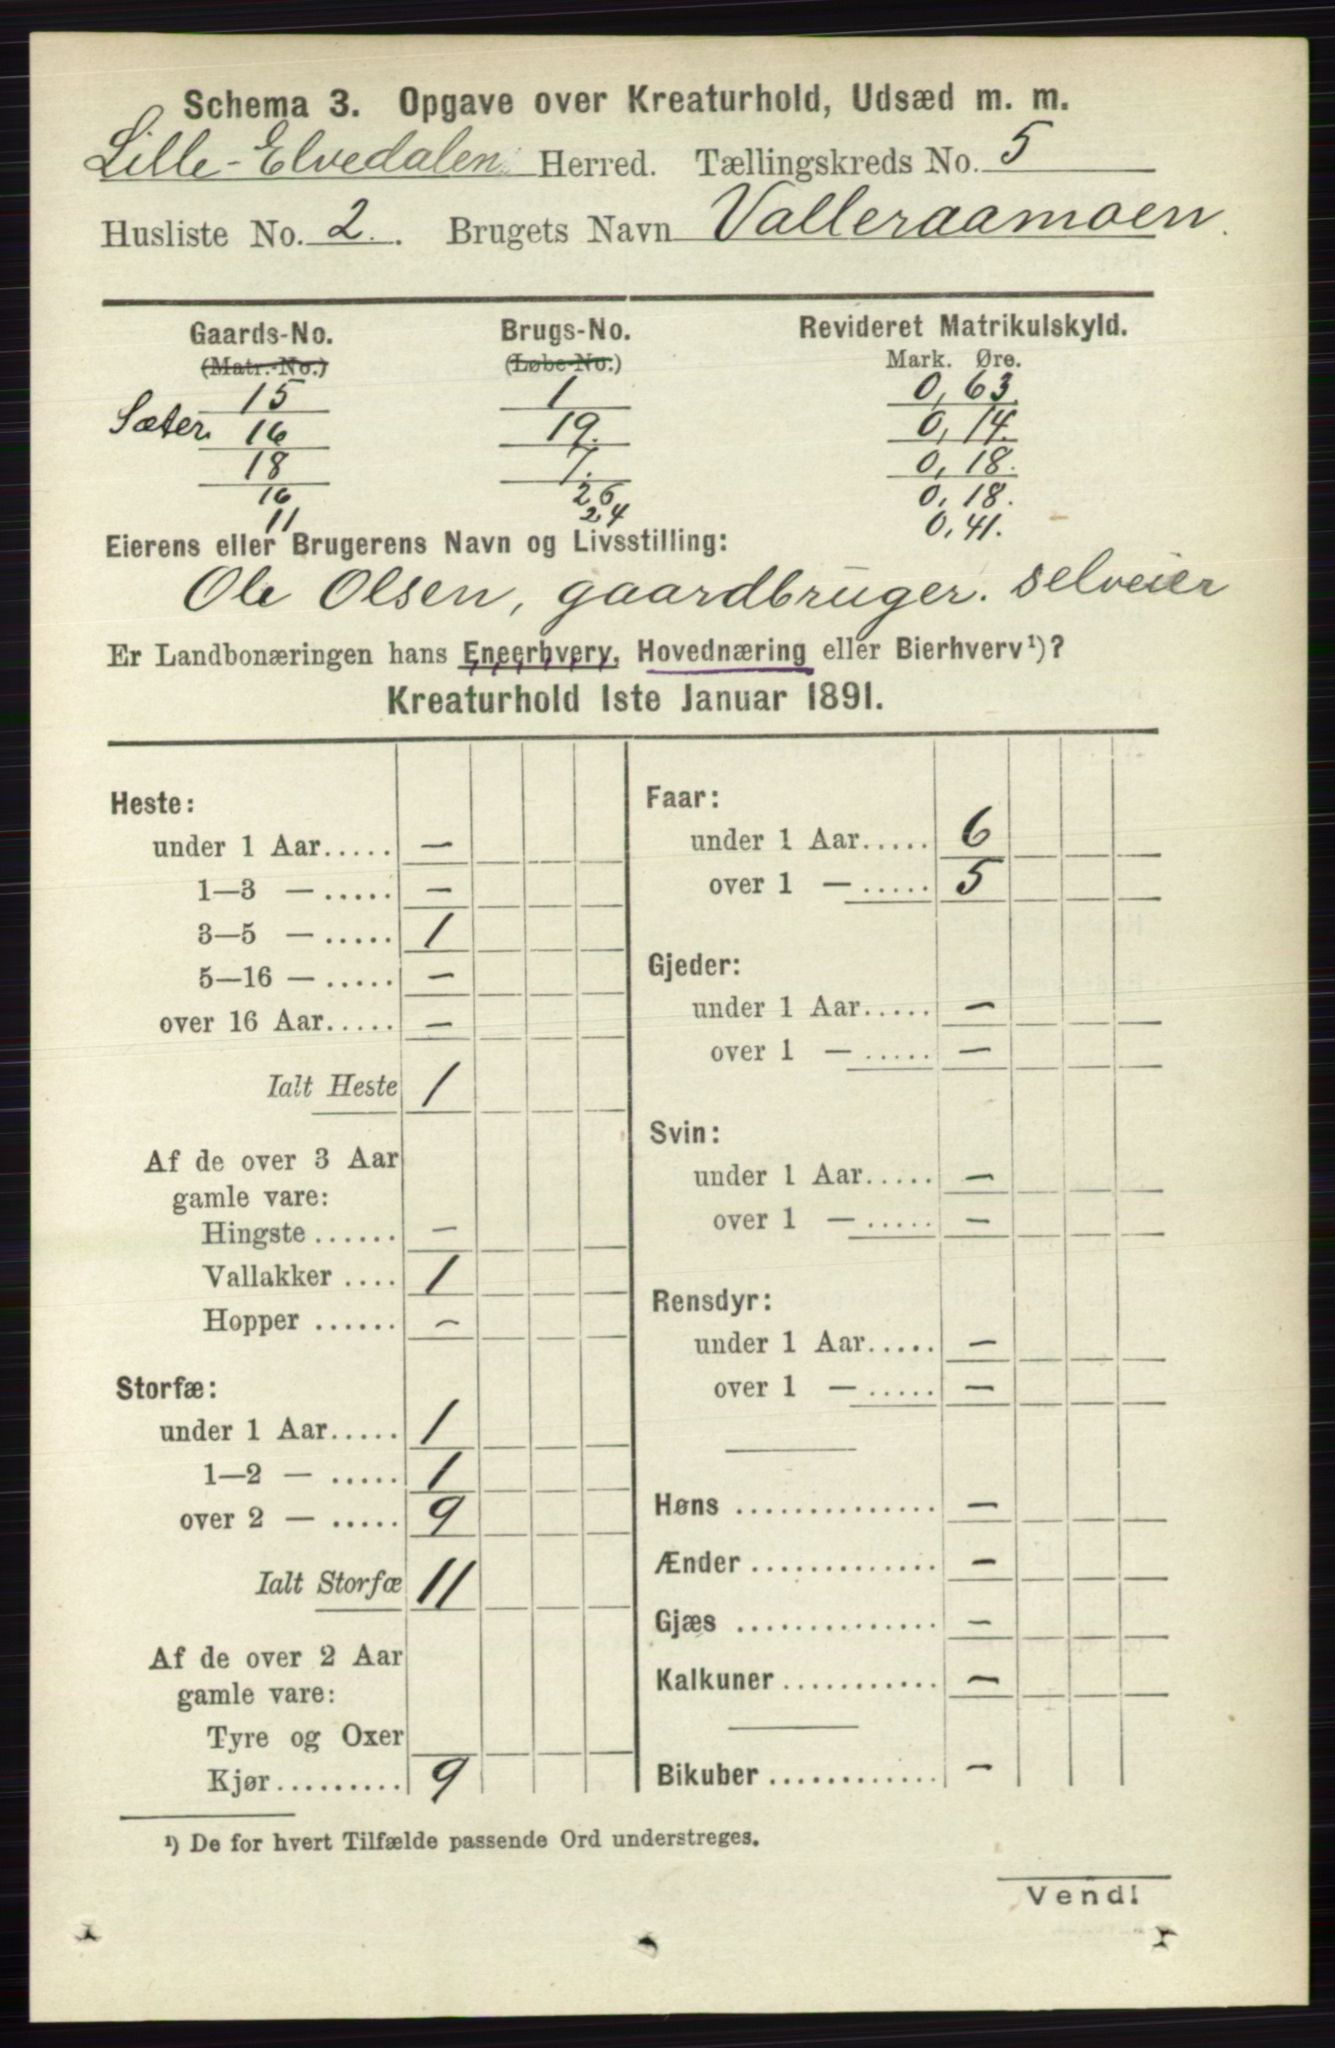 Schema 3. Opgave over Kreaturhold, Udsæd m. m.
Lille-Elvedalen Herred. Tællingskreds No. 5
Husliste No. 2. Brugets Navn Valleraamoen.
Gaards-No. Brugs-No. Revideret Matrikulskyld.
(Matr.-No.) (Løbe-No.) Mark. Øre.
15 1 0,63.
Sæter. 16 19. 0,14.
18 7. 0,18.
16 26 0,18.
11 24 0,41.
Eierens eller Brugerens Navn og Livsstilling:
Ole Olsen, gaardbruger. selveier
Er Landbonæringen hans Eneerhverv, Hovednæring eller Bierhverv¹)?
Kreaturhold 1ste Januar 1891.
Heste:
under 1 Aar..... –
1—3 — ..... –
3—5 — ..... 1
5—16 — ..... –
over 16 Aar..... –
Ialt Heste 1
Af de over 3 Aar
gamle vare:
Hingste ...... –
Vallakker .... 1
Hopper ...... –
Storfæ:
under 1 Aar..... 1
1—2 — ..... 1
over 2 — ..... 9
Ialt Storfæ 11
Af de over 2 Aar
gamle vare:
Tyre og Oxer
Kjør......... 9
Faar:
under 1 Aar..... 6
over 1 — ..... 5
Gjeder:
under 1 Aar..... –
over 1 — ..... –
Svin:
under 1 Aar..... –
over 1 — ..... –
Rensdyr:
under 1 Aar..... –
over 1 — ..... –
Høns .............. –
Ænder ............. –
Gjæs .............. –
Kalkuner ........... –
Bikuber ............ –
¹) De for hvert Tilfælde passende Ord understreges.
Vend!